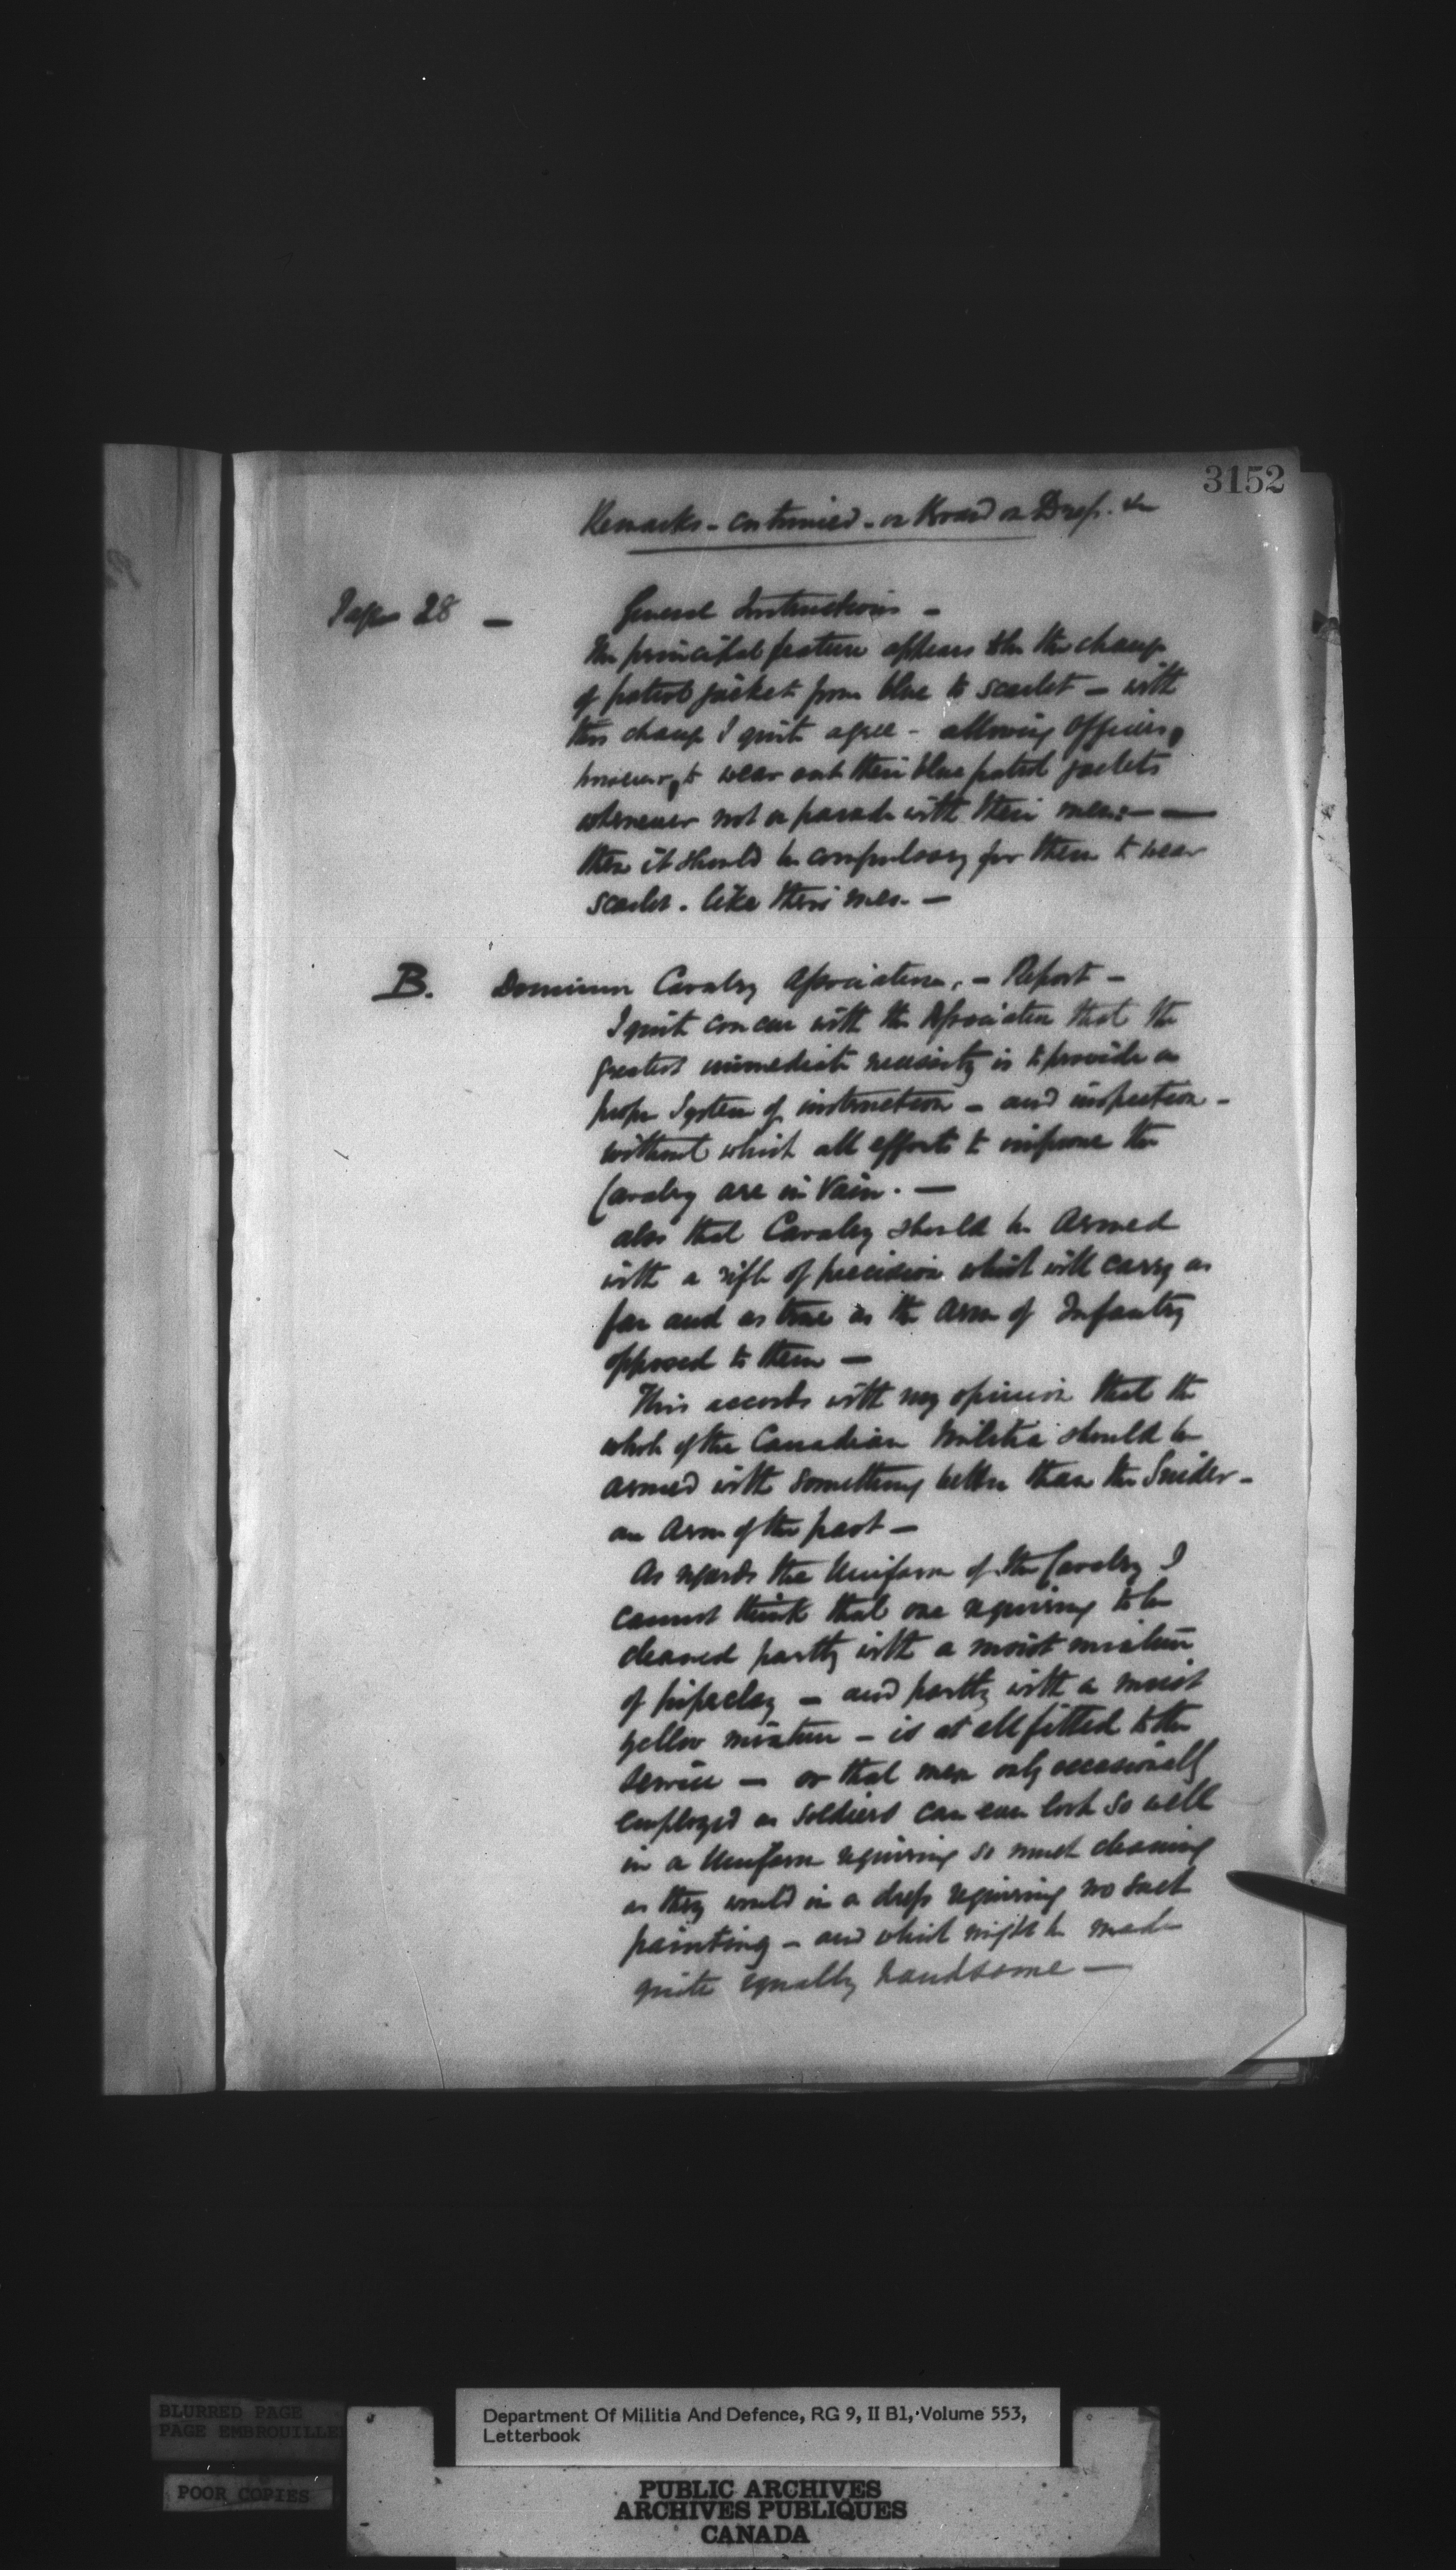 3152
Remarks - continued - on Board on Dress. &c
Page 28 - General Instructions -
The principal feature appears to be the change
of patrol jacket from blue to scarlet - with
this change I quite agree - allowing officers,
however, to wear out their blue patrol jackets
whenever not on parade with their men: -
then it should be compulsory for them to wear
scarlet. like their men. -
B. Dominion Cavalry Association, - Report -
I quite concur with the Association that the
greatest immediate necessity is to provide a
proper System of instruction - and inspection -
without which all efforts to improve the
Cavalry are in vain. -
also that Cavalry should be armed
with a rifle of precision which will carry as
far and as true as the arm of Infantry
opposed to them -
This accords with my opinion that the
whole of the Canadian Militia should be
armed with something better than the Snider -
an arm of the past -
As regards the Uniform of the Cavalry I
cannot think that one requiring to be
cleaned partly with a moist mixture
of pipeclay - and partly with a moist
yellow mixture - is at all fitted to the
service - or that men only occasionally
employed as soldiers can ever look so well
in a Uniform requiring so much cleaning
as they would in a dress requiring no such
painting - and which might be made
quite equally handsome -
BLURRED PAGE
PAGE EMBROUILLE
POOR COPIES
Department Of Militia And Defence, RG 9, II B1, Volume 553,
Letterbook
PUBLIC ARCHIVES
ARCHIVES PUBLIQUES
CANADA